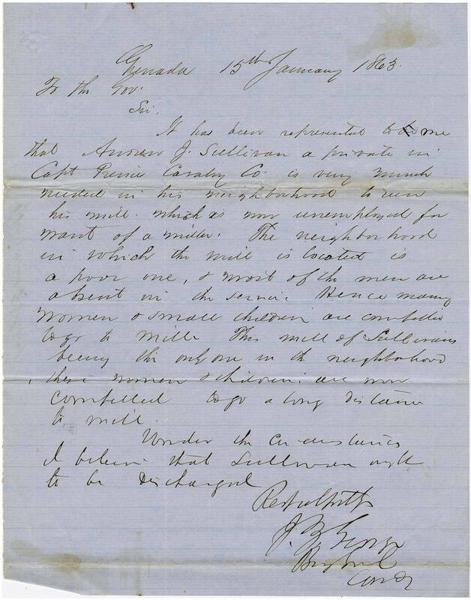 Grenada 15th January 1863.
To the Gov:
Sir.
It has been represented to me
that Andrew J. Sullivan a private in
Capt Cavalry Co. is very much
needed in his neighborhood to run
his mill. which is now unemployed for
want of a miller. The neighborhood
in which the mill is located is
a poor one, & most of the men are
absent in the service. Hence many
women & small children are compelled
to go to mill. This mill of Sullivans
being the only one in the neighborhood,
these women & children are now
compelled to go a long distance
to mill.
Under the circumstances
I believe that Sullivan ought
to be discharged
Respectfully
J. Z. George
Brig Genl
Comdg